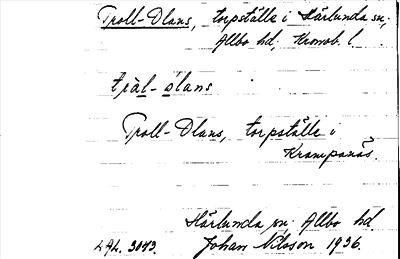 Troll-Olans, torpställe i Härlunda sn,
Allbo hd, Kronob. l.
tràl-ólans
Troll-Olans, torpställe i
Krampanäs.
Härlunda sn. Allbo hd
LAL. 3043. Johan Nilsson 1936.